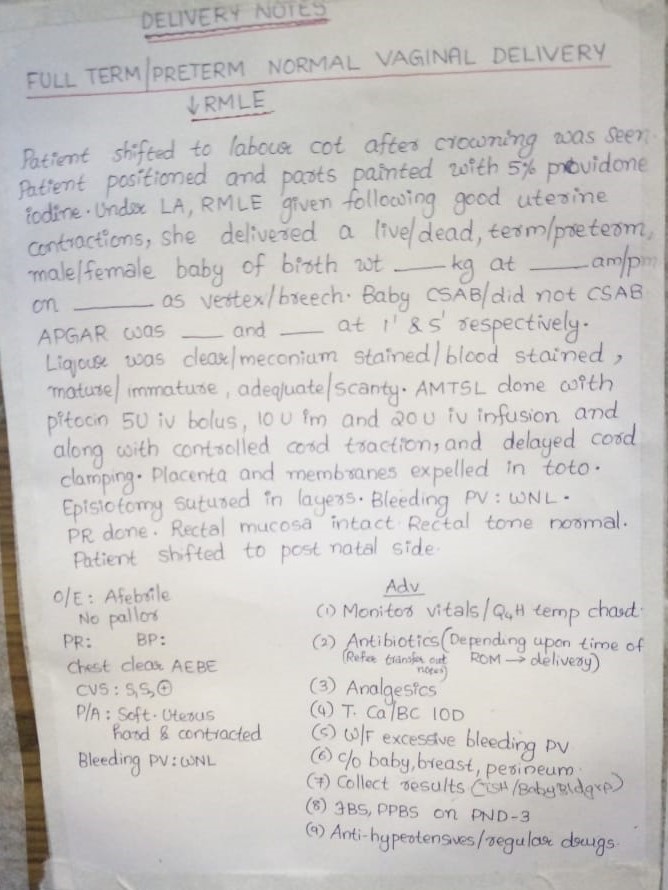 DELIVERY NOTES
FULL TERM/PRETERM NORMAL VAGINAL DELIVERY
↓RMLE
Patient shifted to labour cot after crowning was seen.
Patient positioned and parts painted with 5% providone
iodine. Under LA, RMLE given following good uterine
contractions, she delivered a live/dead, term/preterm,
male/female baby of birth wt ___ kg at ___ am/pm
on ___ as vertex/breech. Baby CSAB/did not CSAB
APGAR was ___ and ___ at 1' & 5' respectively.
Liqouse was clear/meconium stained/blood stained,
mature/immature, adequate/scanty. AMTSL done with
pitocin 5U iv bolus, 10 U im and 20 U iv infusion and
along with controlled cord traction, and delayed cord
clamping. Placenta and membranes expelled in toto.
Episiotomy sutured in layers. Bleeding PV: WNL.
PR done. Rectal mucosa intact. Rectal tone normal.
Patient shifted to post natal side.
O/E: Afebrile
No pallor
PR: BP:
Chest clear AEBE
CVS: S₁S₂⊕
P/A: Soft. Uterus
hard & contracted
Bleeding PV: WNL
Adv
(1) Monitor vitals/Q4H temp chart
(2) Antibiotics (Depending upon time of
(Refer transfer out notes) ROM → delivery)
(3) Analgesics
(4) T. Ca/BC 10D
(5) W/F excessive bleeding PV
(6) c/o baby, breast, perineum
(7) Collect results (TSH/Baby Bldgrp)
(8) FBS, PPBS on PND-3
(9) Anti-hypertensives/regular drugs.